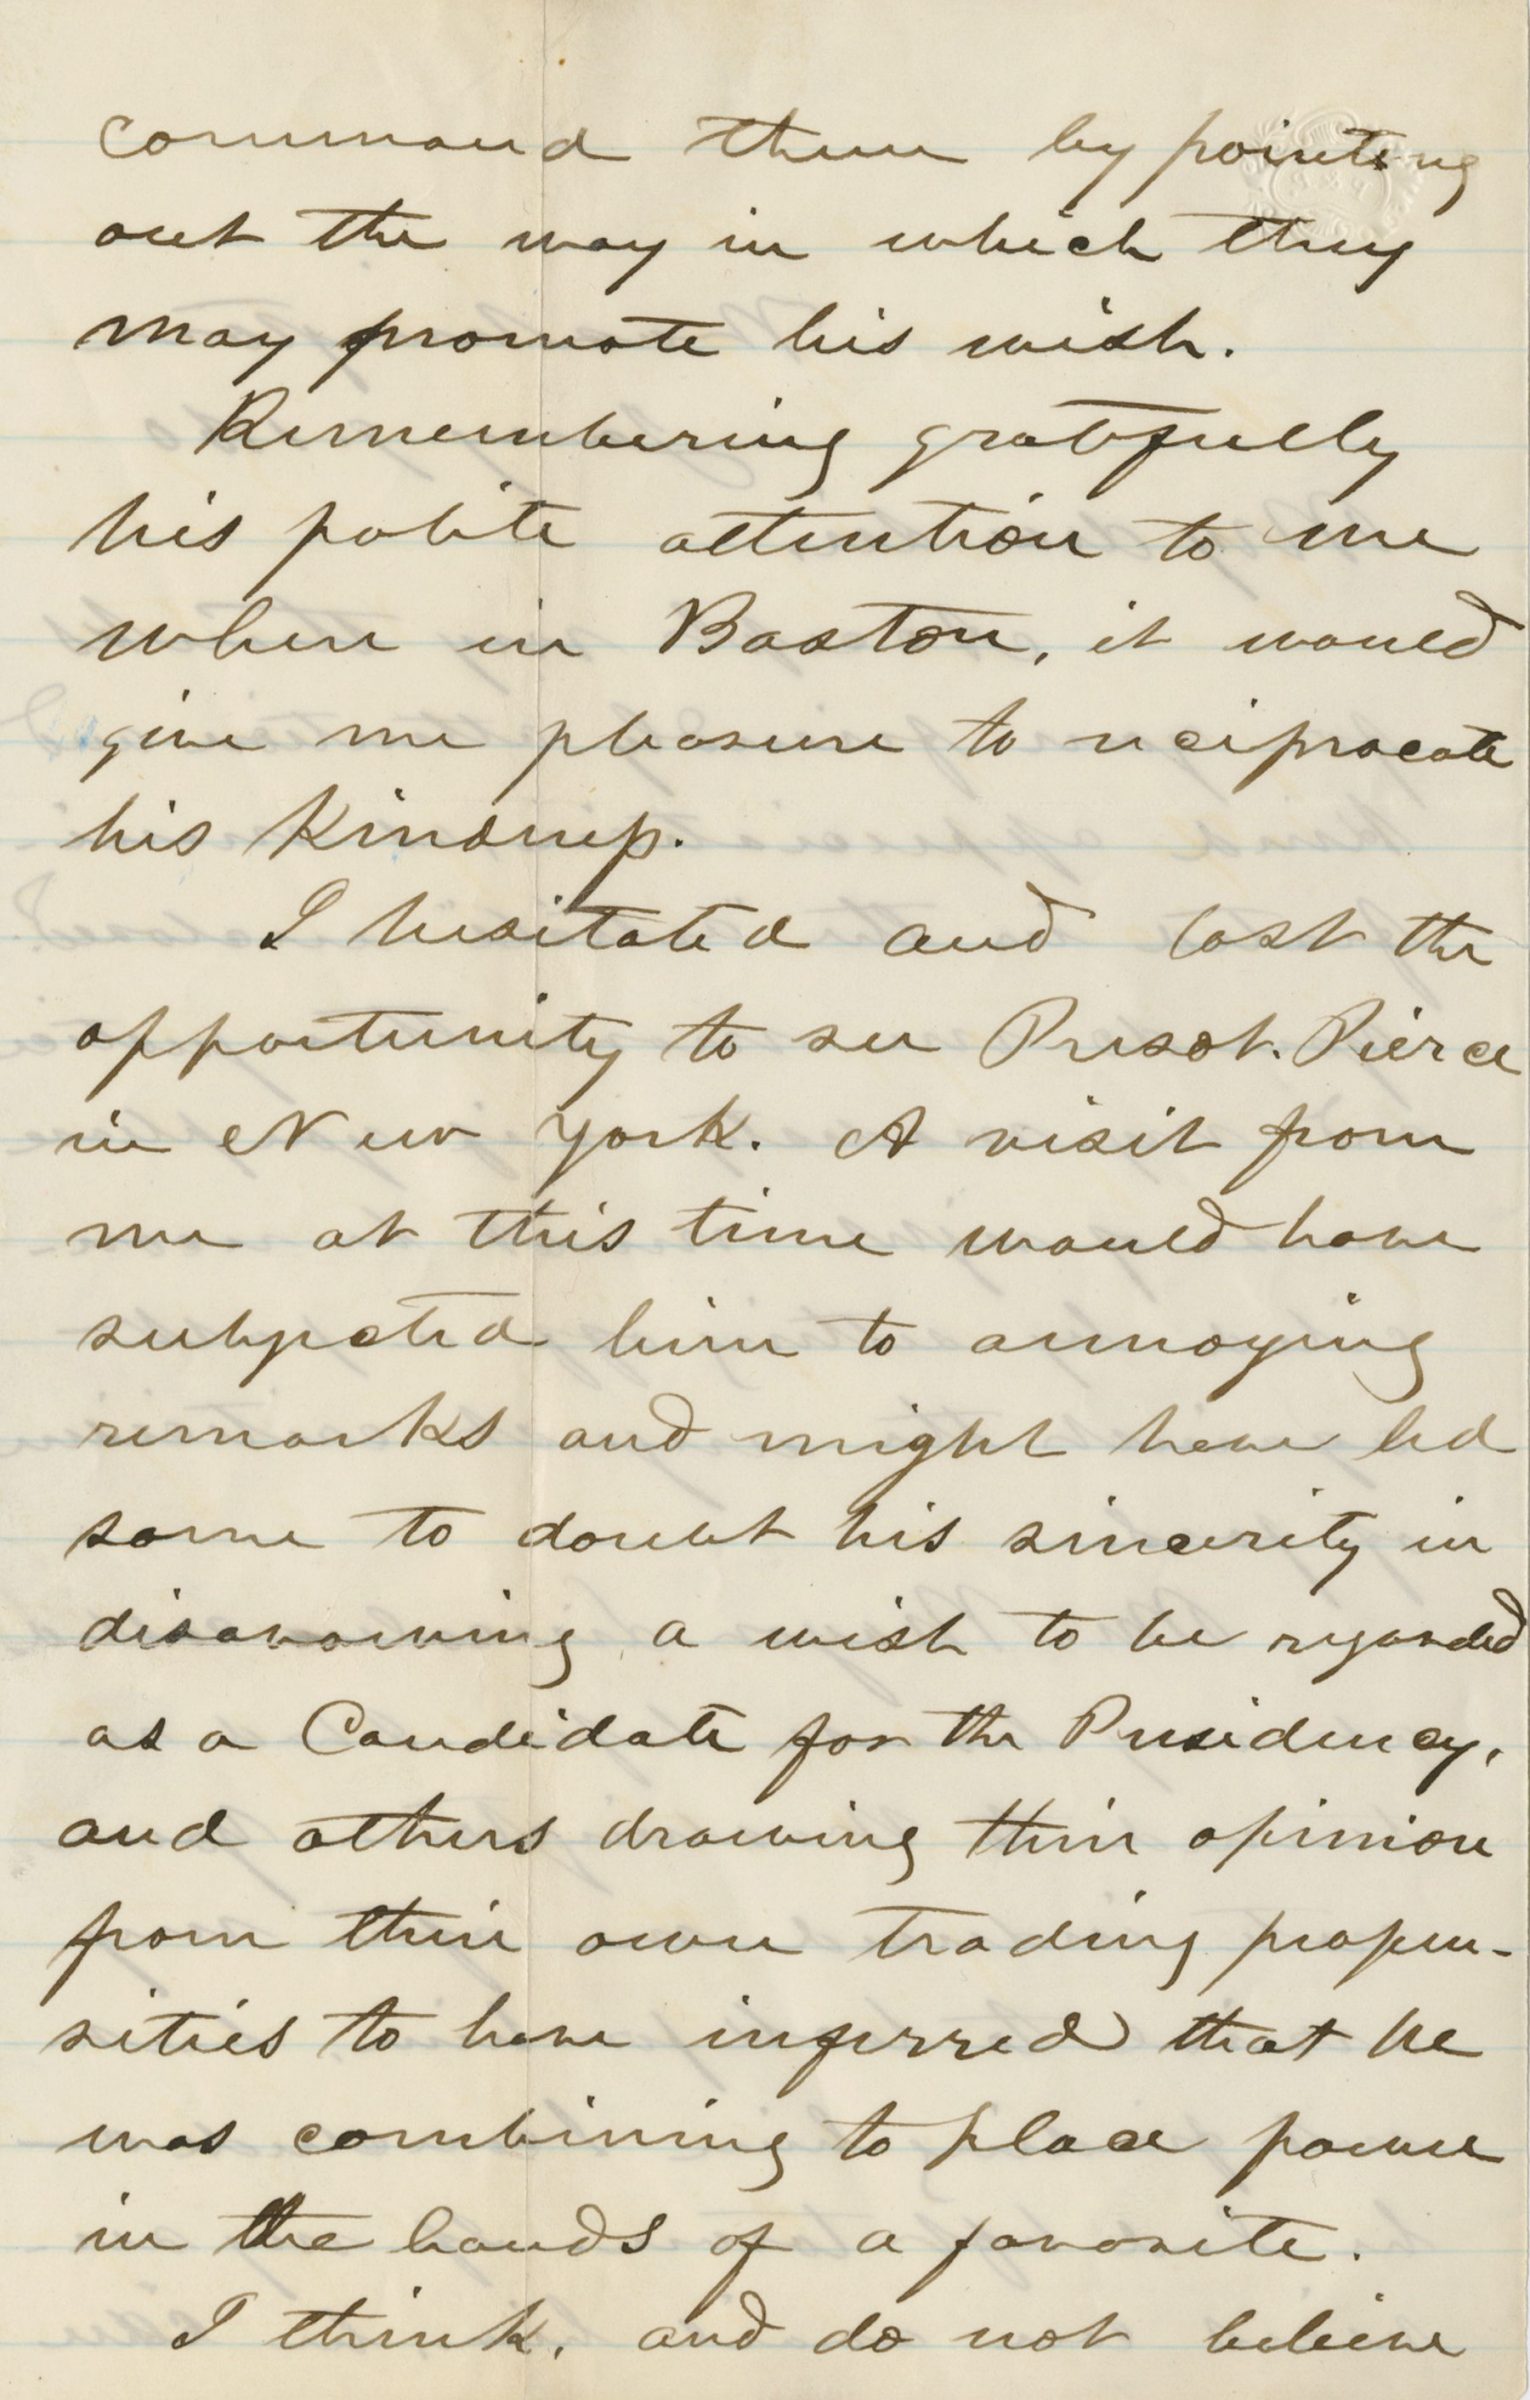 command them by pointing
out the way in which they
may promote his wish.
Remembering gratefully
his polite attention to me
when in Boston, it would
give me pleasure to reciprocate
his kindness.
I hesitated and lost the
opportunity to see Presdt. Pierce
in New York. A visit from
me at this time would have
subjected him to annoying
remarks and might have led
some to doubt his sincerity in
disavowing a wish to be regarded
as a Candidate for the Presidency,
and others drawing their opinion
from their own trading propen-
sities to have inferred that he
was combining to place power
in the hands of a favorite.
I think, and do not believe